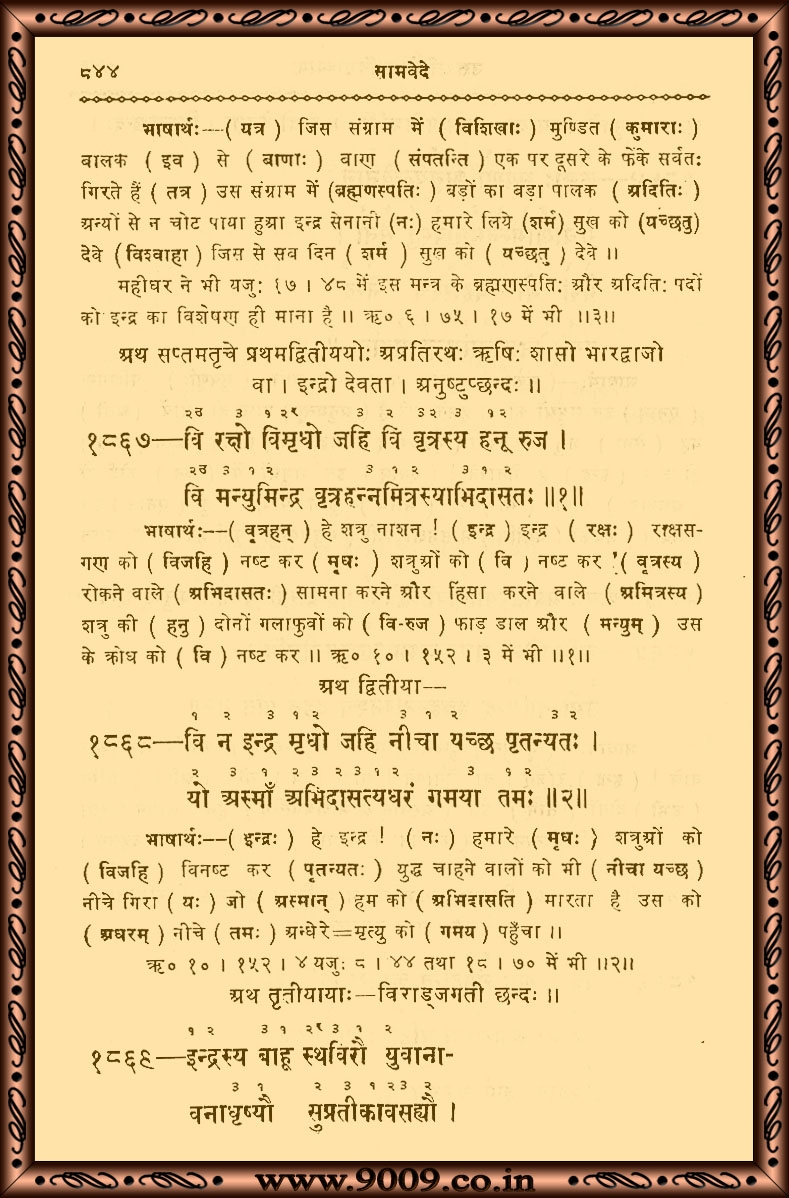 ८४४ सामवेदे
भाषार्थः—( यत्र ) जिस संग्राम में ( विशिखाः ) मुण्डित ( कुमाराः )
बालक ( इव ) से ( बाणाः ) बाण ( संपतन्ति ) एक पर दूसरे के फेंके सर्वतः
गिरते हैं ( तत्र ) उस संग्राम में (ब्रह्मणस्पतिः ) बड़ों का बड़ा पालक ( अदितिः )
अन्यों से न चोट पाया हुआ इन्द्र सेनानी (नः) हमारे लिये (शर्म) सुख को (यच्छतु)
देवे (विश्वाहा ) जिस से सब दिन ( शर्म ) सुख को ( यच्छतु ) देवे ।।
महीधर ने भी यजुः १७ । ४८ में इस मन्त्र के ब्रह्मणस्पतिः और अदितिः पदों
को इन्द्र का विशेषण ही माना है ।। ऋ० ६ । ७५ । १७ में भी ।।३।।
अथ सप्तमतृचे प्रथमद्वितीययोः अप्रतिरथः ऋषिः शासो भारद्वाजो
वा । इन्द्रो देवता । अनुष्टुप्छन्दः ।।
२उ ३ १ २र ३ २ ३२ ३ १२
१८६७—वि रक्षो विमृधो जहि वि वृत्रस्य हनू रुज ।
२उ ३ १ २ ३ १ २ ३ १ २
वि मन्युमिन्द्र वृत्रहन्नमित्रस्याभिदासतः ॥१॥
भाषार्थः—( वृत्रहन् ) हे शत्रु नाशन ! ( इन्द्र ) इन्द्र ( रक्षः ) राक्षस-
गण को ( विजहि ) नष्ट कर ( मृधः ) शत्रुओं को ( वि ) नष्ट कर ( वृत्रस्य )
रोकने वाले ( अभिदासतः ) सामना करने और हिंसा करने वाले ( अमित्रस्य )
शत्रु की ( हनु ) दोनों गलाफुवों को ( वि-रुज ) फाड़ डाल और ( मन्युम् ) उस
के क्रोध को ( वि ) नष्ट कर ।। ऋ० १० । १५२ । ३ में भी ।।१।।
अथ द्वितीया—
१ २ ३ १ २ ३ १ २ ३ २
१८६८—वि न इन्द्र मृधो जहि नीचा यच्छ पृतन्यतः ।
२ ३ १ २ ३ २ ३ १ २ ३ १ २
यो अस्माँ अभिदासत्यधरं गमया तमः ॥२॥
भाषार्थः—( इन्द्रः ) हे इन्द्र ! ( नः ) हमारे ( मृधः ) शत्रुओं को
( विजहि ) विनष्ट कर ( पृतन्यतः ) युद्ध चाहने वालों को भी ( नीचा यच्छ )
नीचे गिरा ( यः ) जो ( अस्मान् ) हम को ( अभिदासति ) मारता है उस को
( अधरम् ) नीचे ( तमः ) अन्धेरे=मृत्यु को ( गमय ) पहुँचा ।।
ऋ० १० । १५२ । ४ यजुः ८ । ४४ तथा १८ । ७० में भी ।।२।।
अथ तृतीयायाः—विराड्जगती छन्दः ।।
१ २ ३ १ २र ३ १ २
१८६९—इन्द्रस्य बाहू स्थविरौ युवाना-
३ १ २ ३ १ २३ २
वनाधृष्यौ सुप्रतीकावसह्यौ ।
www.9009.co.in